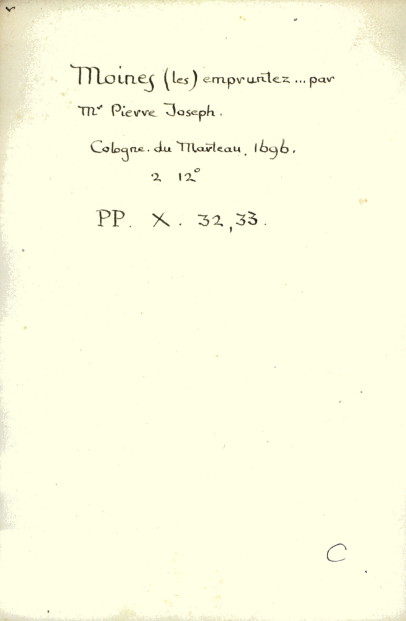 Moines (les) empruntez... par
Mr Pierre Joseph.
Cologne. du Marteau. 1696.
2 12°
PP. X. 32,33.
C